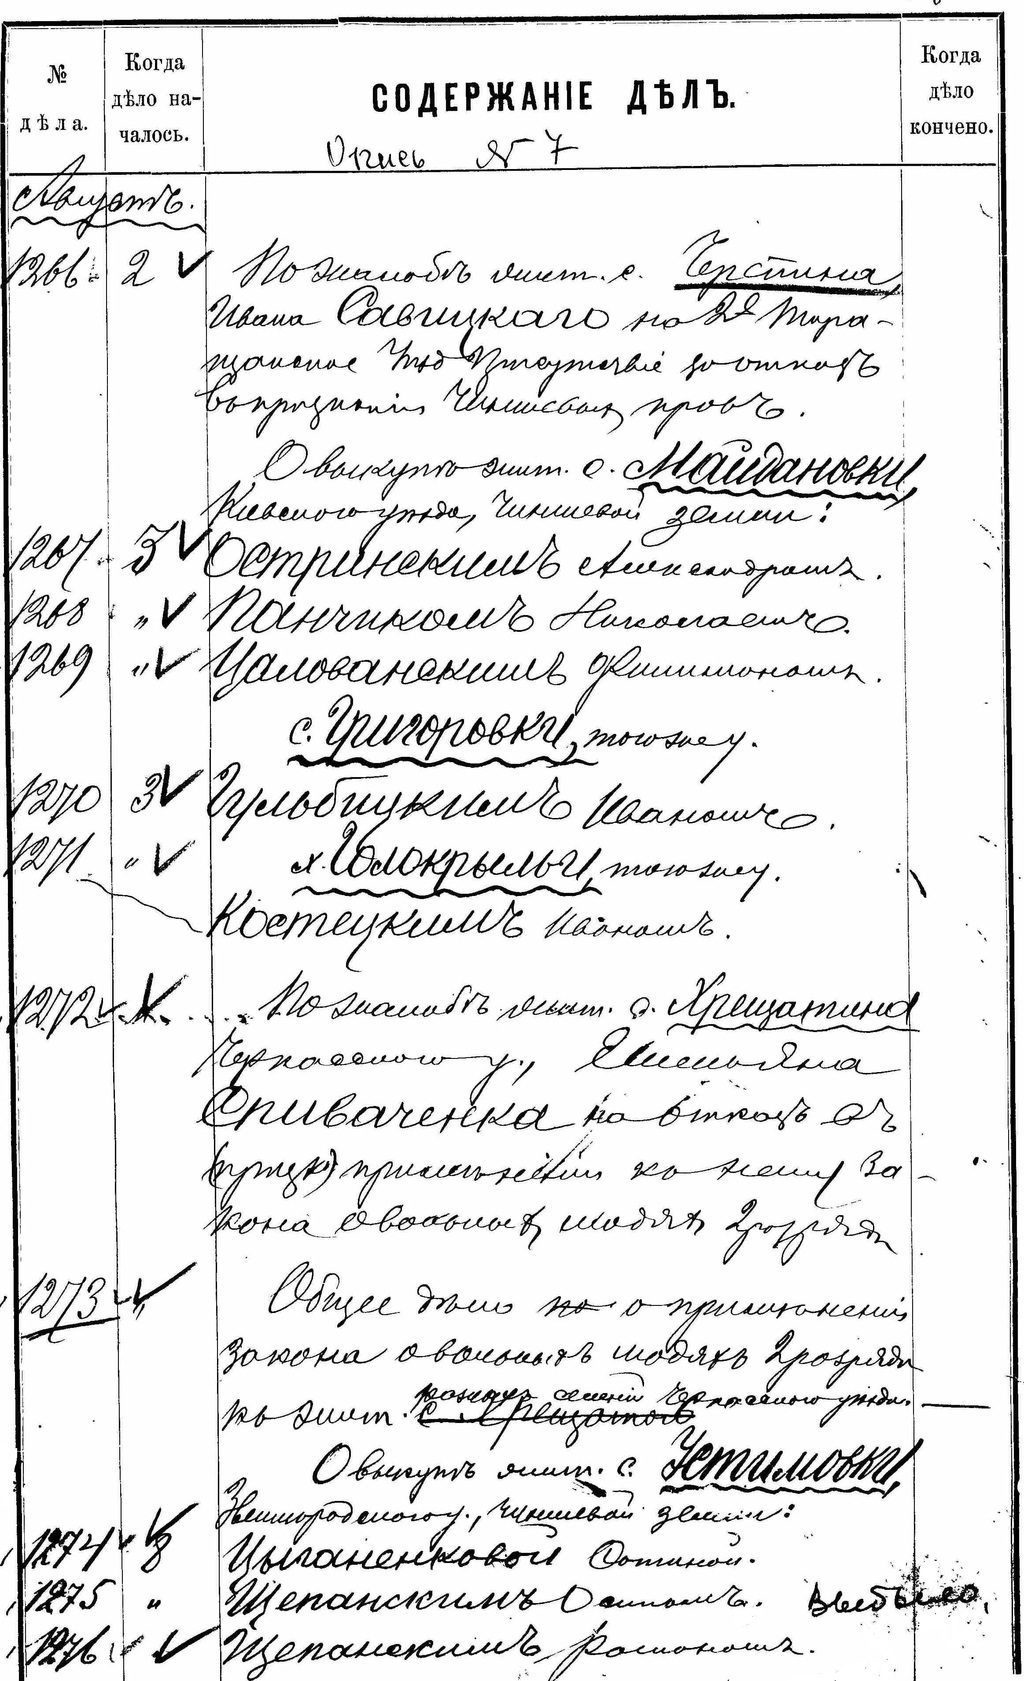 №
дѣла.
Когда
дѣло на-
чалось.
СОДЕРЖАНІЕ ДѢЛЪ.
Когда
дѣло
кончено.
Опись № 7
Августъ.
1266 2 По жалобѣ жит. с. Черепина,
Ивана Савицкаго на Тара-
щанское Уѣзд Присутствіе за отказъ
чиншевыхъ правъ.
О выкупѣ жит. с. Майдановки,
Кіевскаго уѣзда, чиншевой земли:
1267 3 Остринскимъ Александромъ.
1268 „ Панчикомъ Николаемъ.
1269 „ Цаловански​мъ Филимономъ.
с. Григоровки, того же у.
1270 3 Гульбицкимъ Иваномъ.
1271 „ х. Голокрылы, того же у.
Костецкимъ Иваномъ.
1272 По жалобѣ жит. с. Хрещатина
Черкасскаго у., Емельяна
Спиваченка на отказъ въ
примѣненіи къ нему За-
кона о вольныхъ людяхъ 2 разряда
1273 „ Общее дѣло по о примѣненіи
закона о вольныхъ людяхъ 2 разряда
разныхъ селеній Черкасскаго уѣзда.
къ жит. с. Хрещатой
О выкупѣ жит. с. Устимовки,
Звенигородскаго у., чиншевой земли:
1274 3 Цыганенковой
1275 „ Щепанскимъ Осипомъ. Выбыло,
1276 „ Щепанскимъ Романомъ.